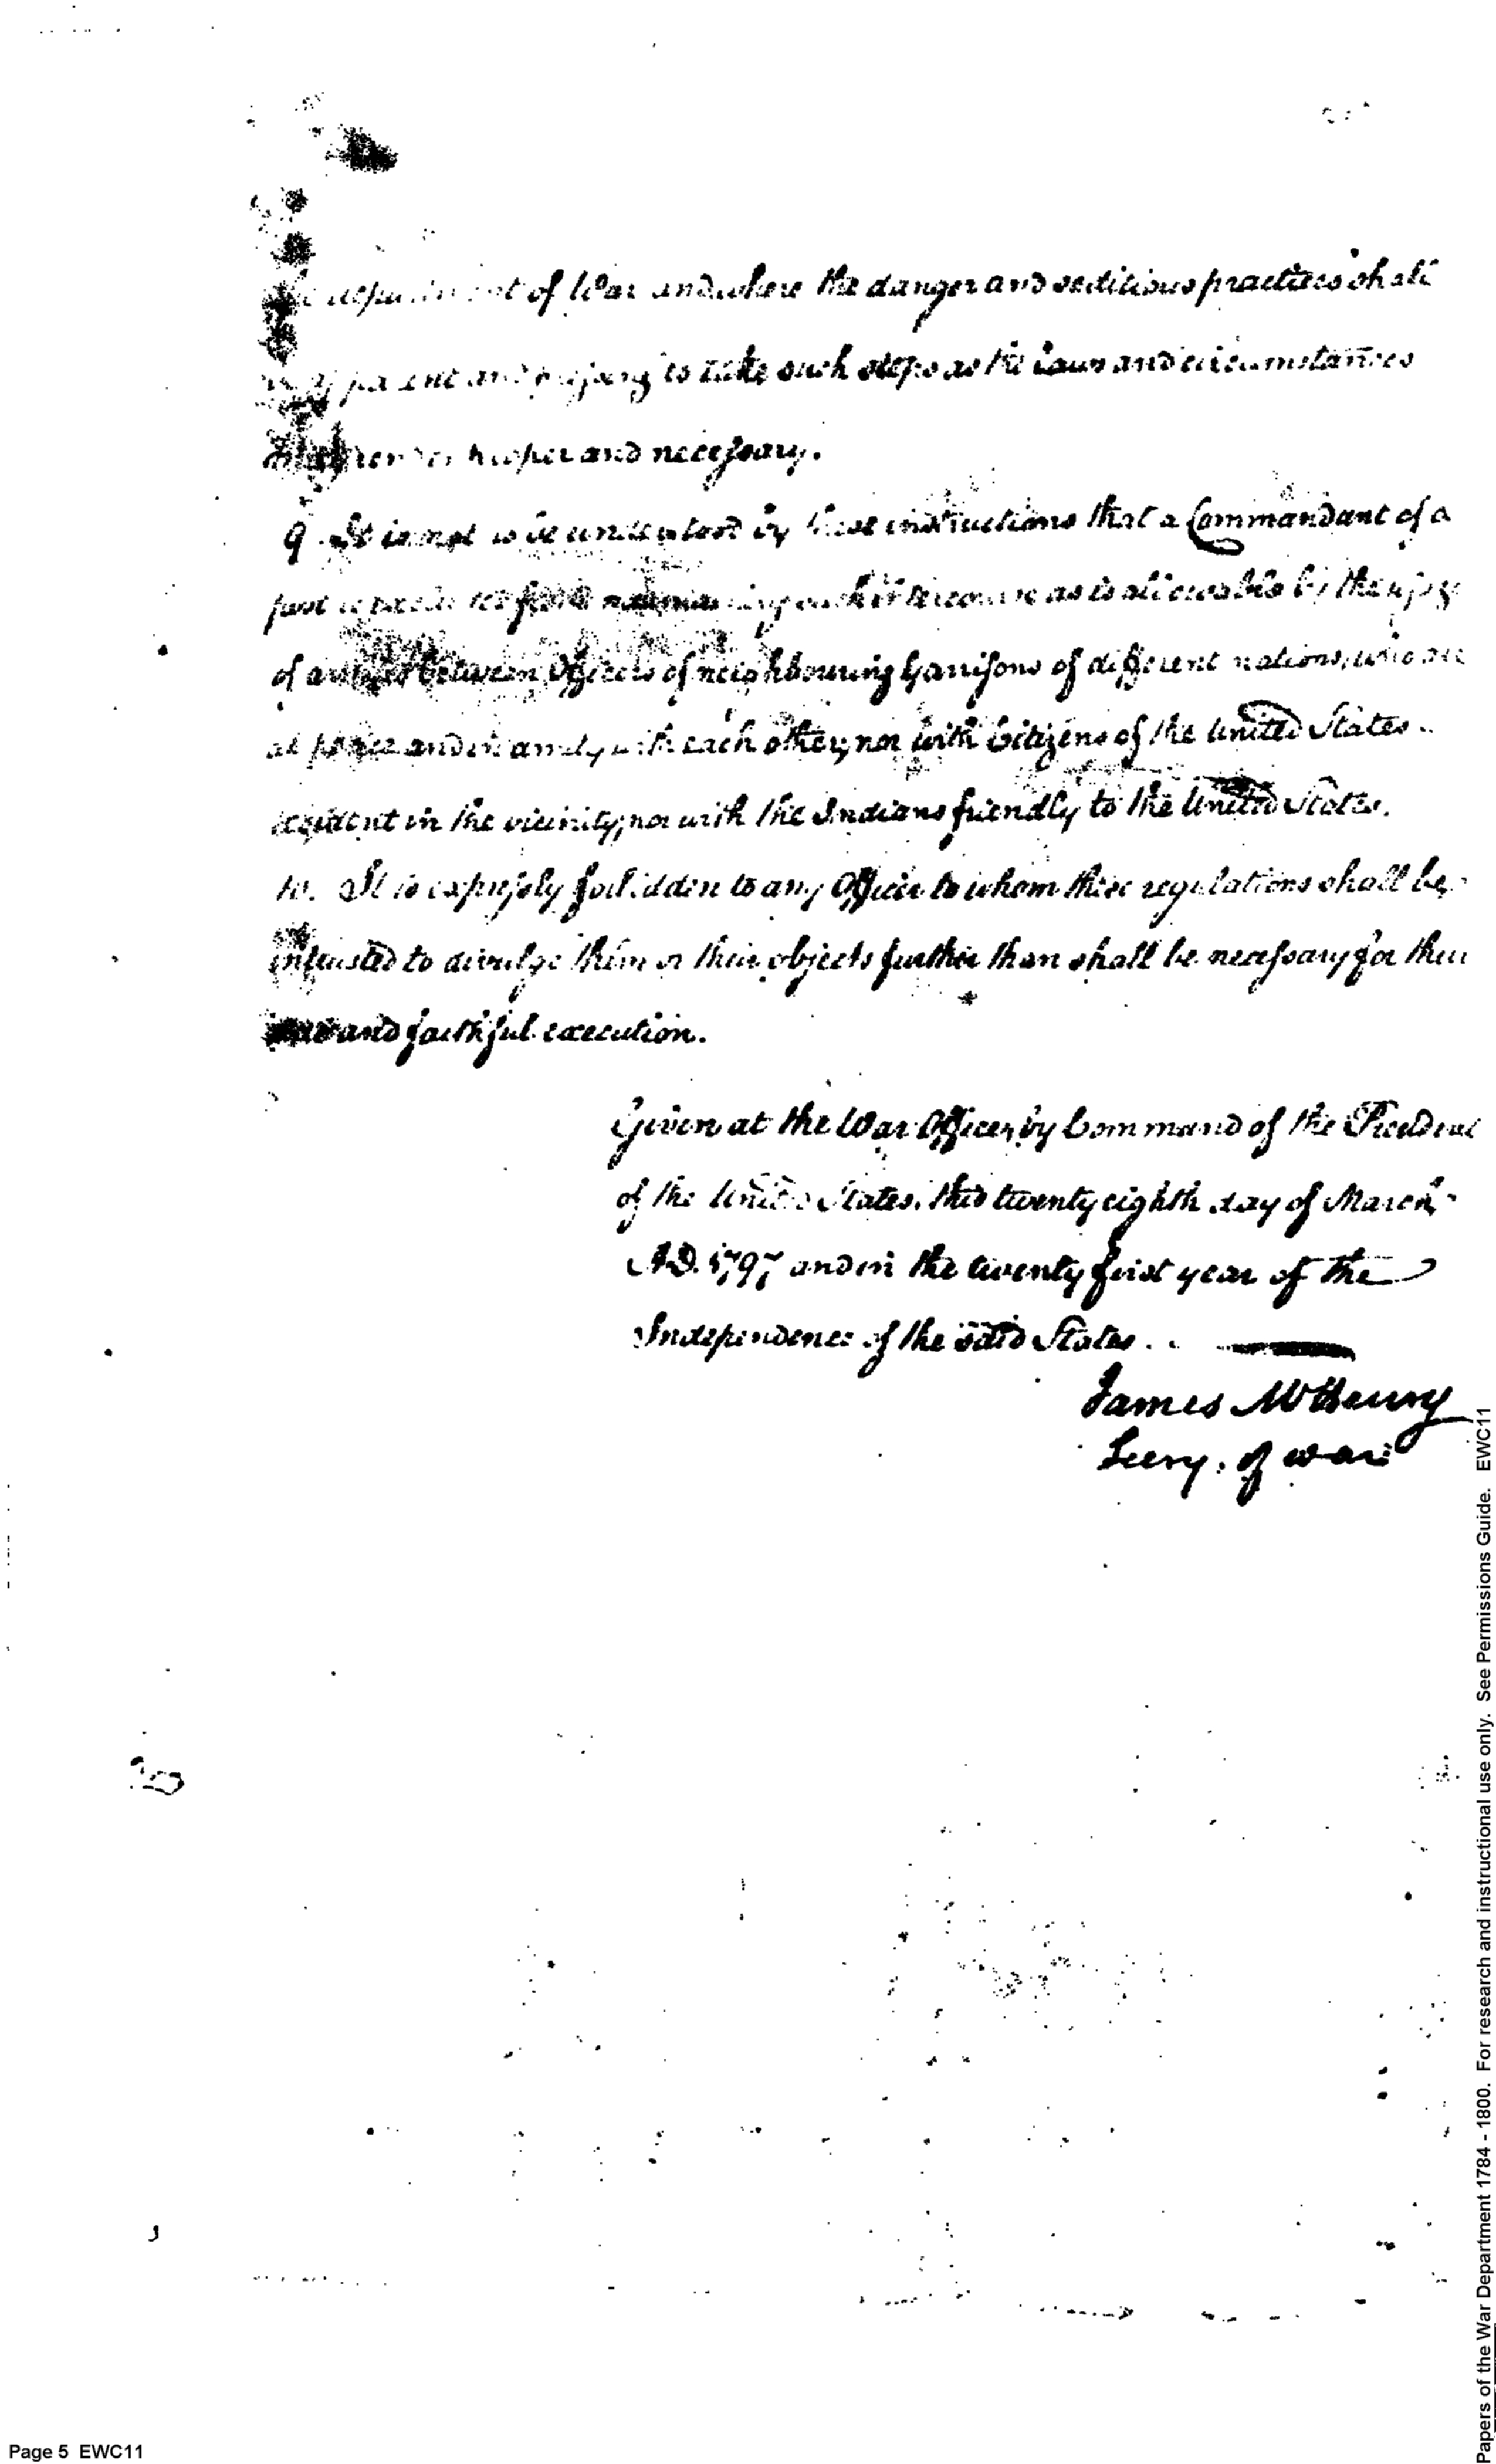 department of War and where the danger and seditious practices shall
to take such steps as the Laws and circumstances
proper and necessary.
9. It is not to be understood by these instructions that a Commandant of a
post is such intercourse as is allowable by the usage
of between Officers of neighbouring Garrisons of different nations, who are
at peace and in amity with each other, nor with Citizens of the United States
resident in the vicinity, nor with the Indians friendly to the United States.
10. It is expressly forbidden to any Officer to whom these regulations shall be
intrusted to divulge them or their objects further than shall be necessary for their
and faithful execution.
Given at the War Office, by Command of the President
of the United States, this twenty eighth day of March,
A.D. 1797, and in the twenty first year of the
Independence of the said States.
James McHenry
Secry. of war
Papers of the War Department 1784 - 1800. For research and instructional use only. See Permissions Guide. EWC11
Page 5 EWC11